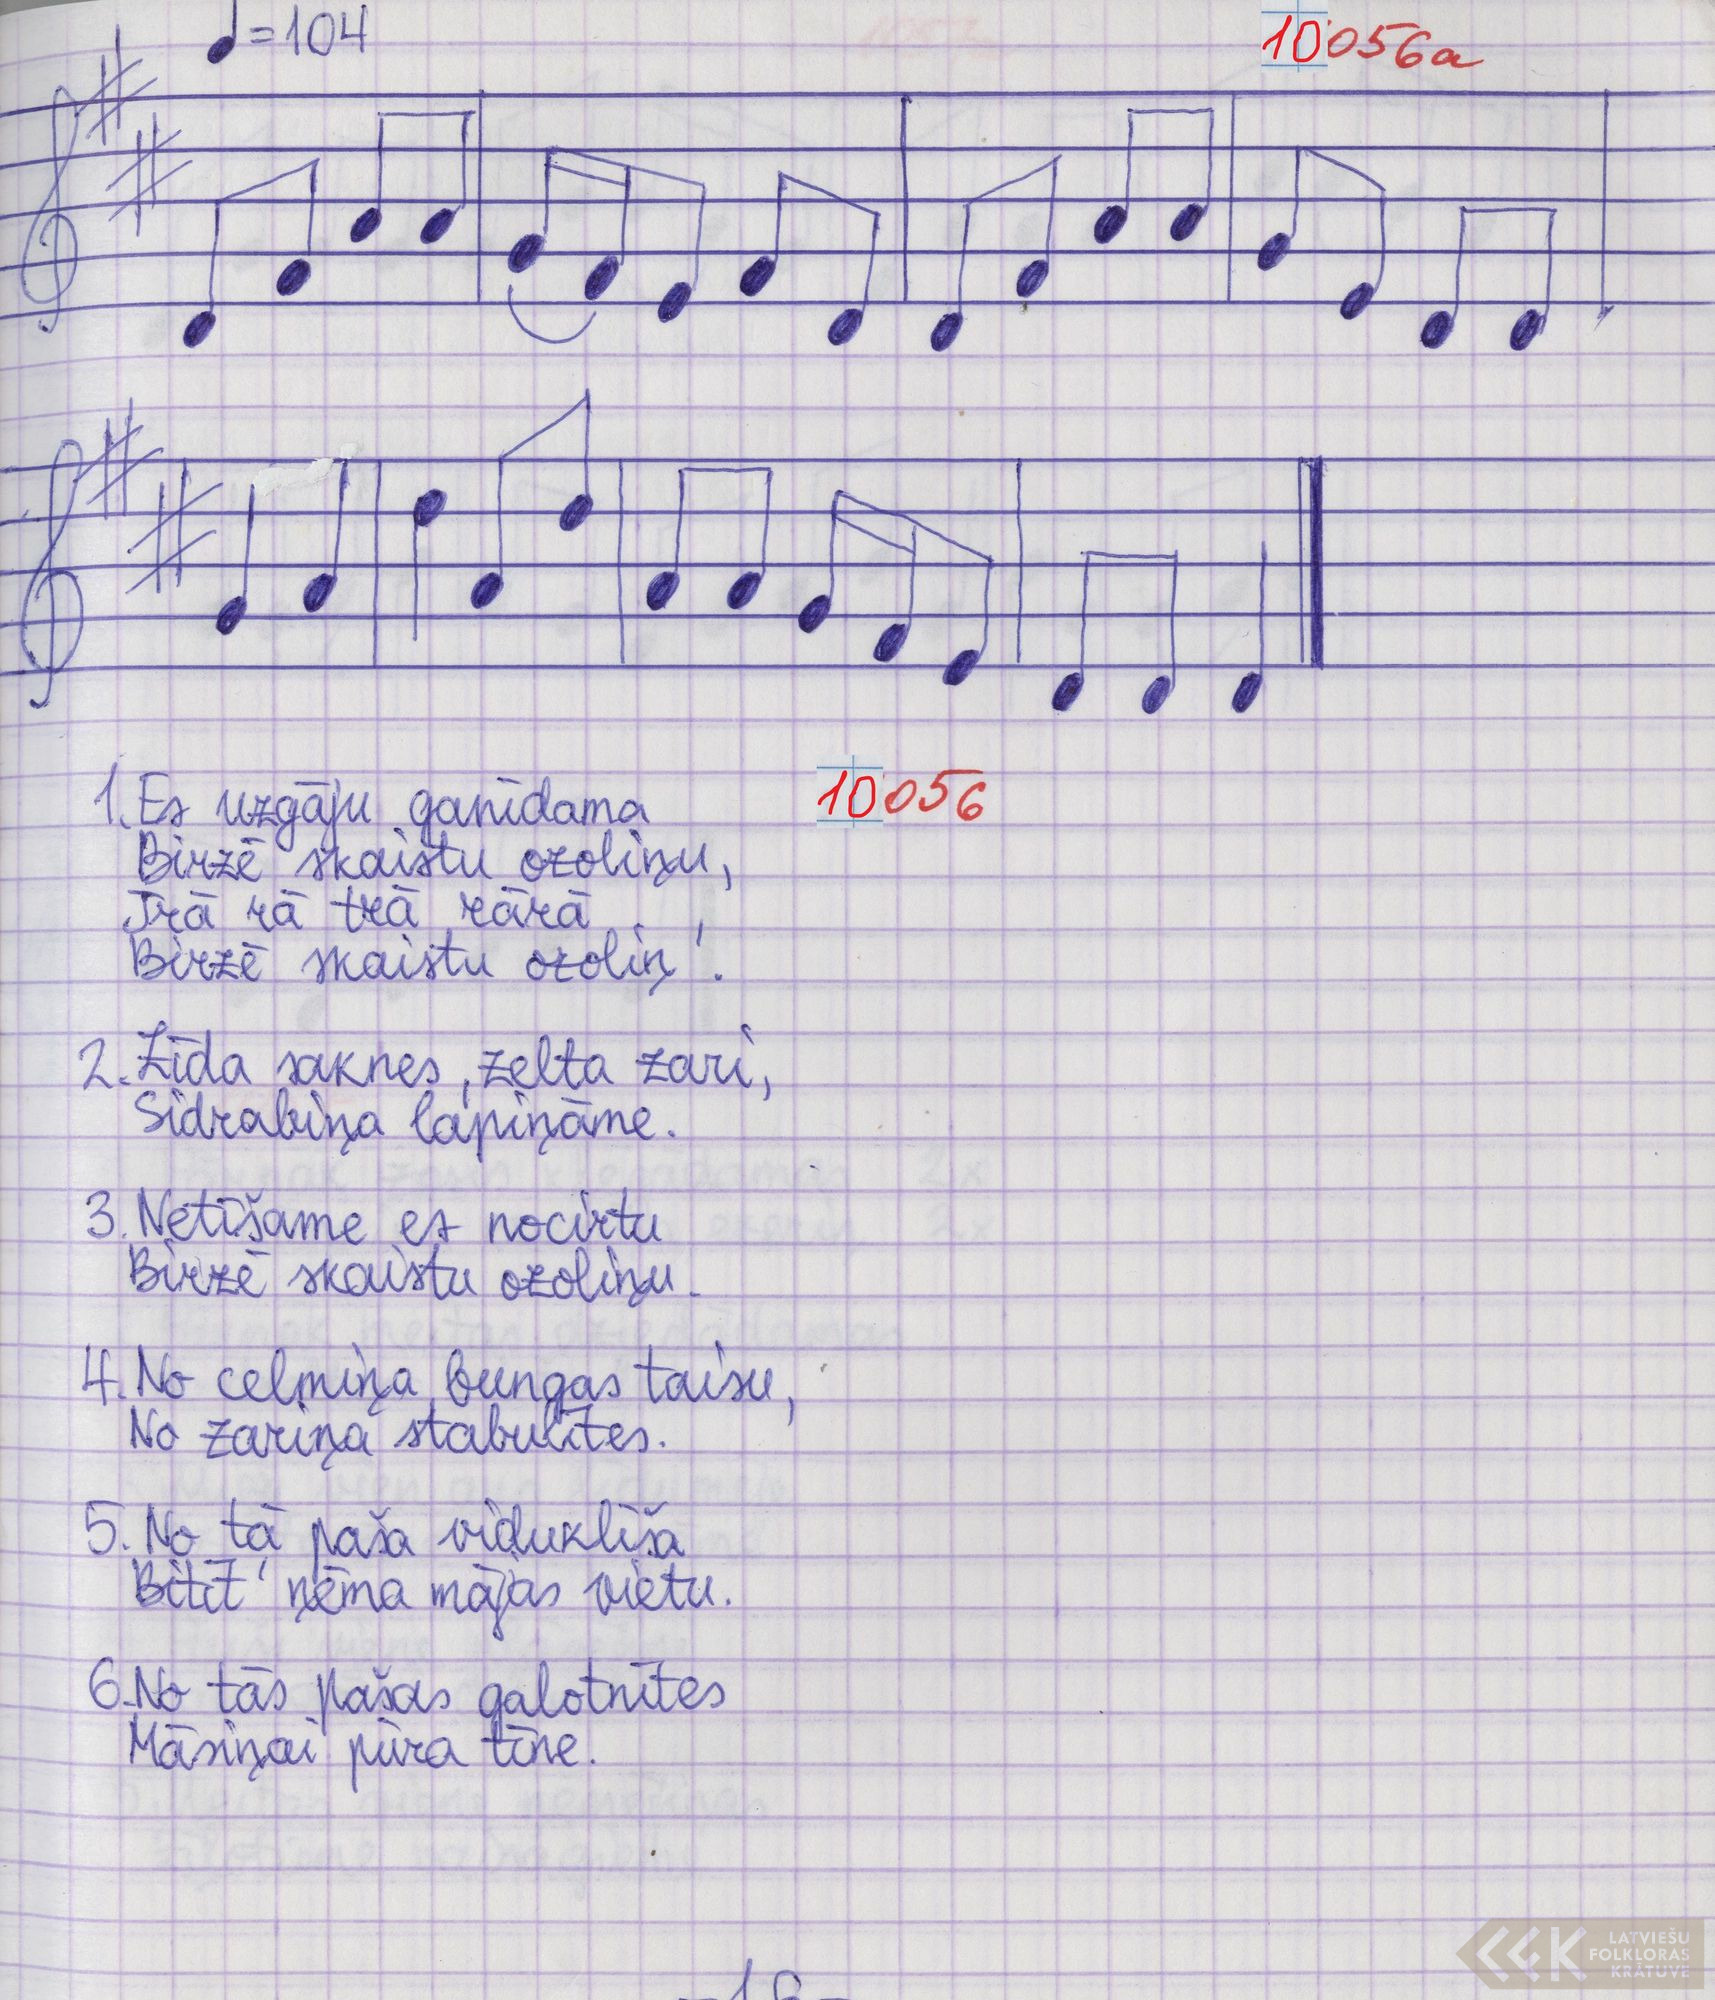 ♩=104
10056a
1. Es uzgāju ganīdama
10056
Birzē skaistu ozoliņu,
Trā rā trā rārā
Birzē skaistu ozoliņ'.
2. Zīda saknes, zelta zari,
Sidrabiņa lapiņāme.
3. Netīšame es nocirtu
Birzē skaistu ozoliņu.
4. No celmiņa bungas taisu,
No zariņa stabulītes.
5. No tā paša viduklīša
Bitīt' ņēma mājas vietu.
6. No tās pašas galotnītes
Māsiņai pūra tīne.
LATVIEŠU
FOLKLORAS
KRĀTUVE